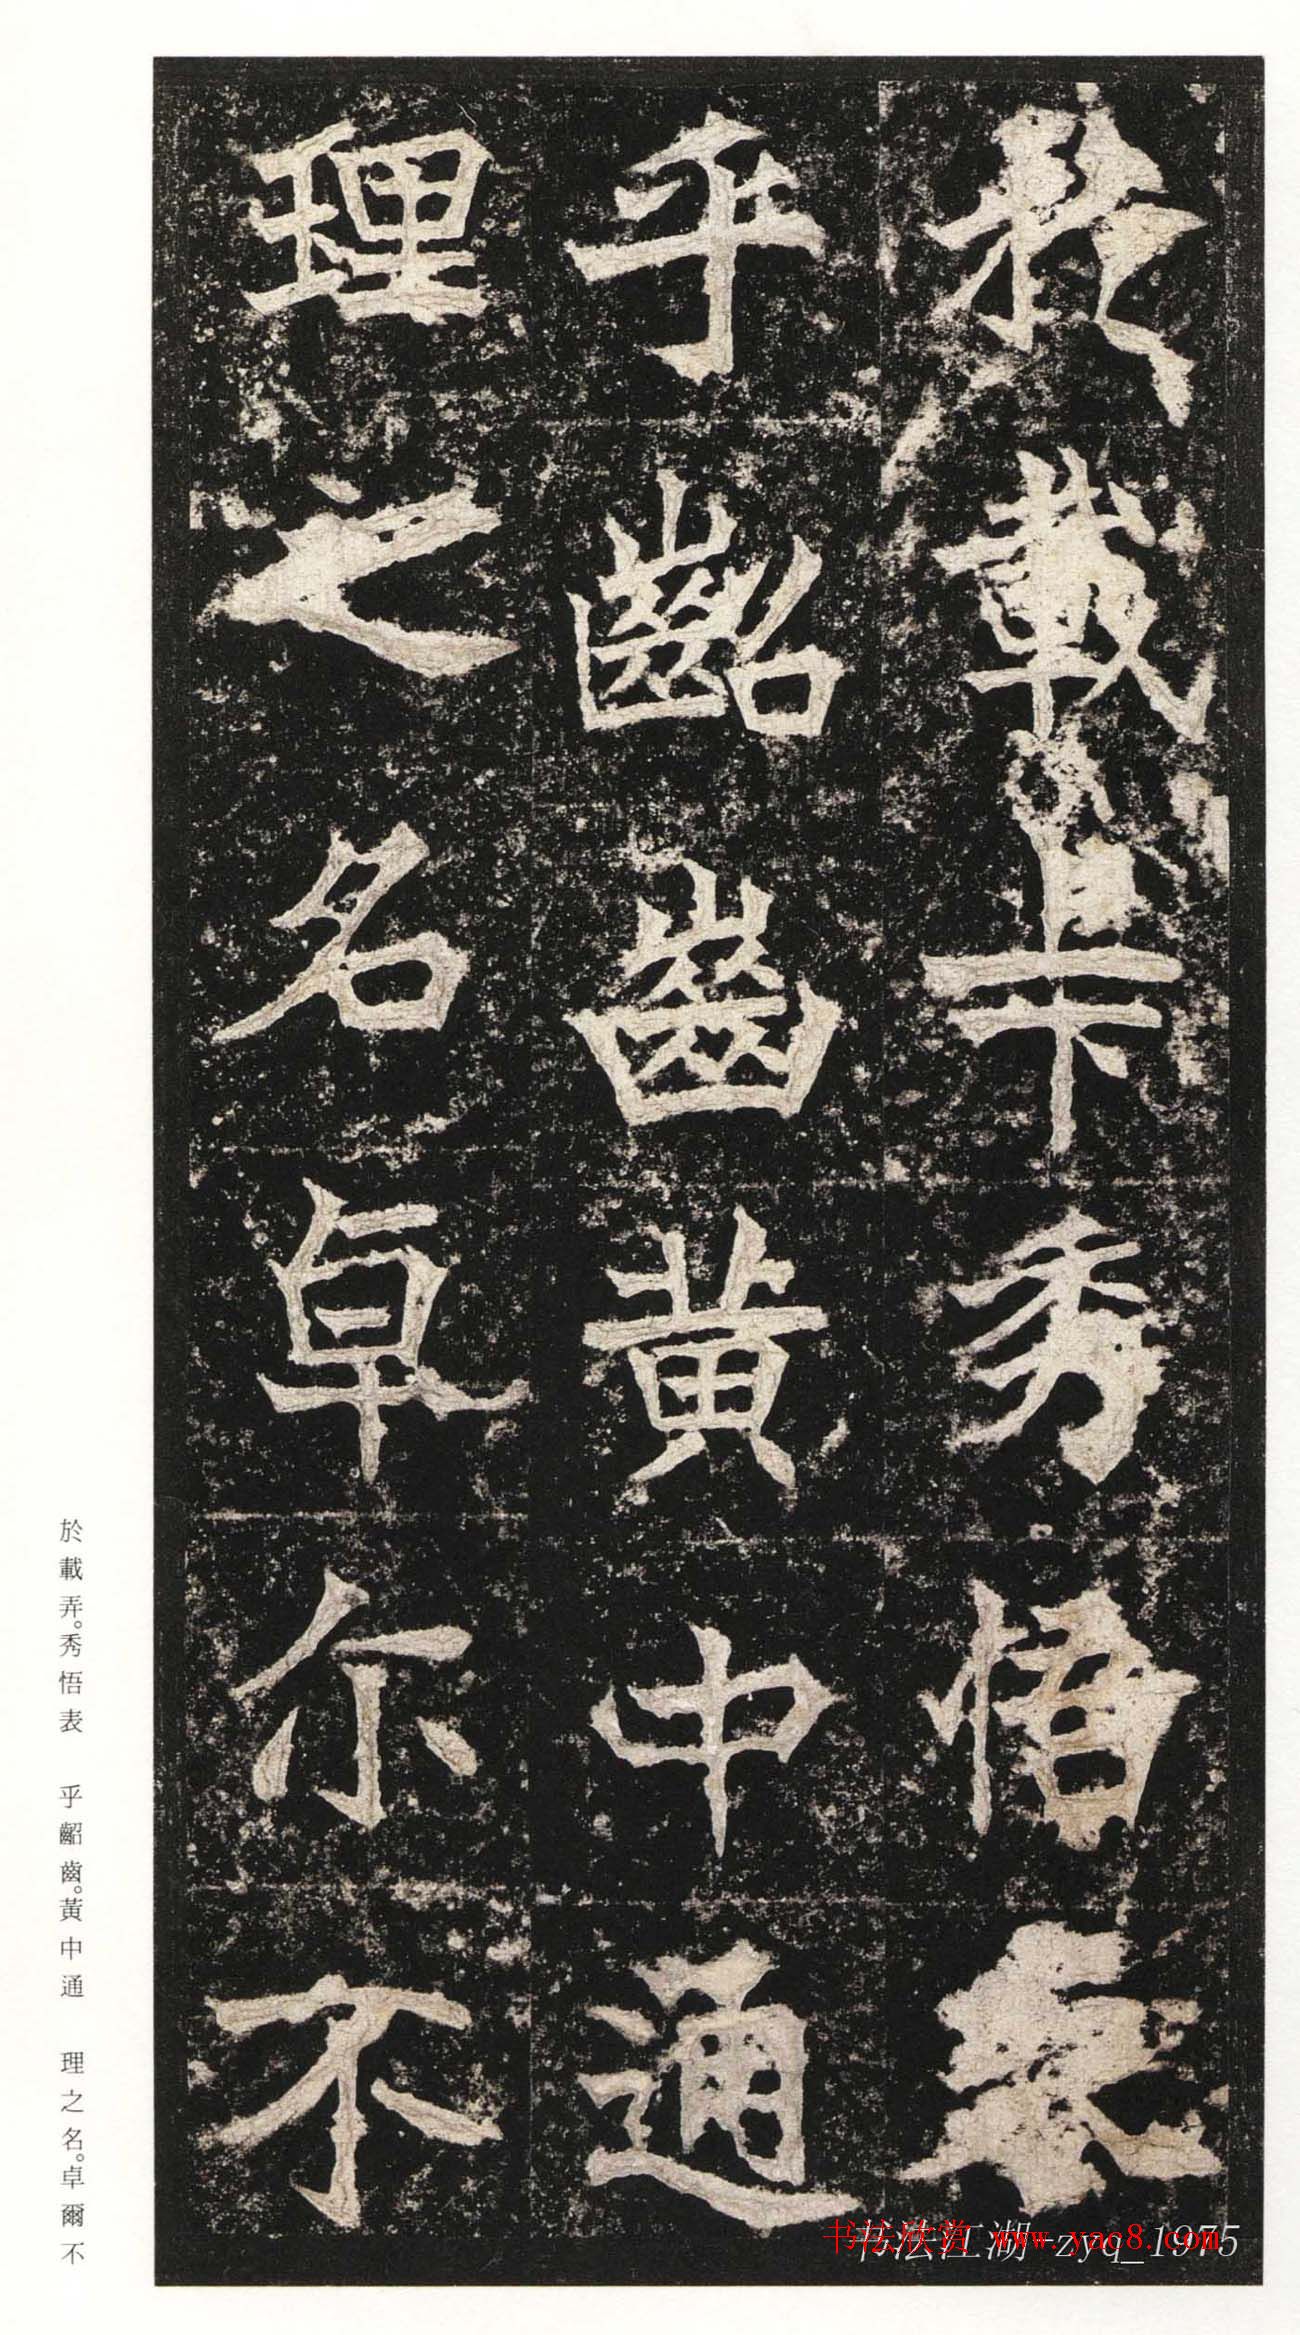 於載卡秀悟表
乎齠齒黃中通
理之名卓尒不
於載弄。秀悟表 乎齠齒。黃中通 理之名。卓爾不
书法欣赏 www.yac8.com
书法江湖-zyq_1975